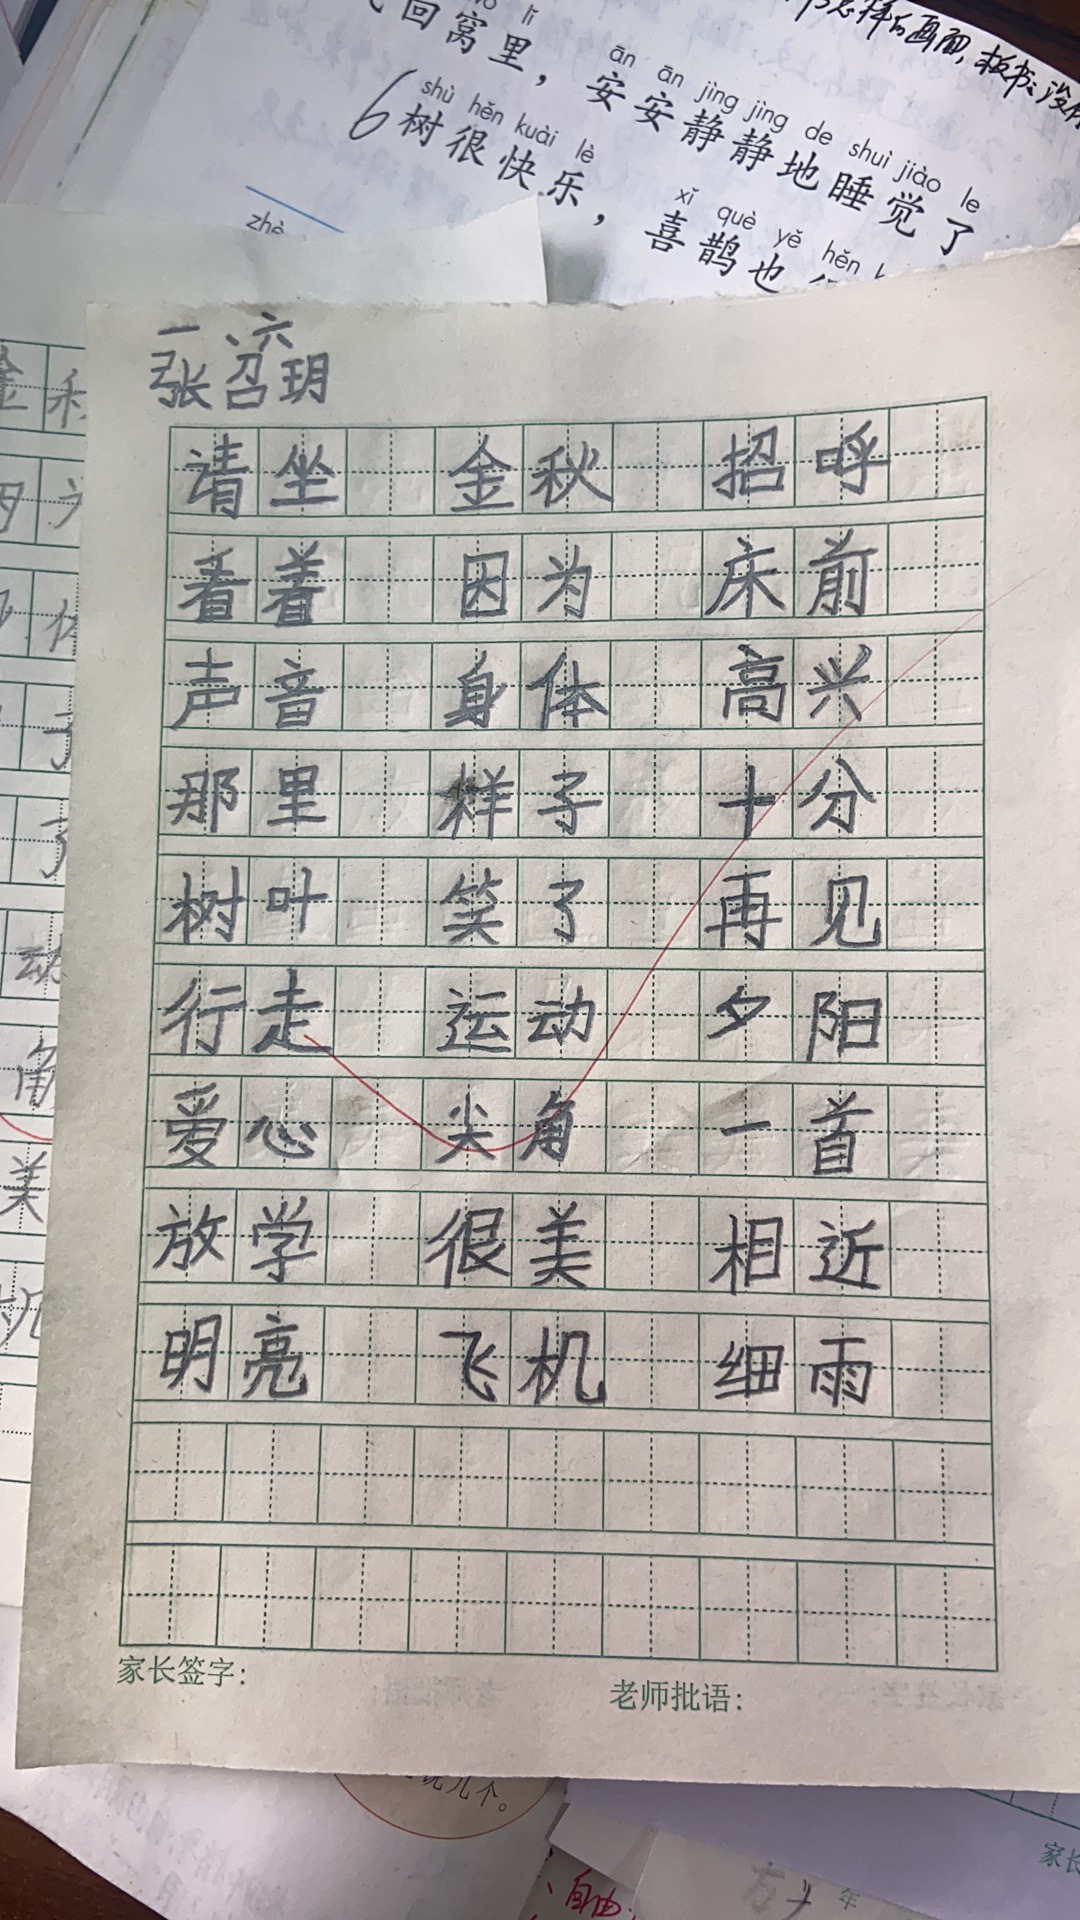 回窝里，安安静静地睡觉了
lǐ ān ān jìng jìng de shuì jiào le
shù hěn kuài lè xǐ què yě hěn
6树很快乐，喜鹊也
zhè
一、六
张召玥
请坐 金秋 招呼
看着 因为 床前
声音 身体 高兴
那里 样子 十分
树叶 笑了 再见
行走 运动 夕阳
爱心 尖角 一首
放学 很美 相近
明亮 飞机 细雨
家长签字：
老师批语：
说几个。
家长
自由
年
金
子
了
动
角
美
机